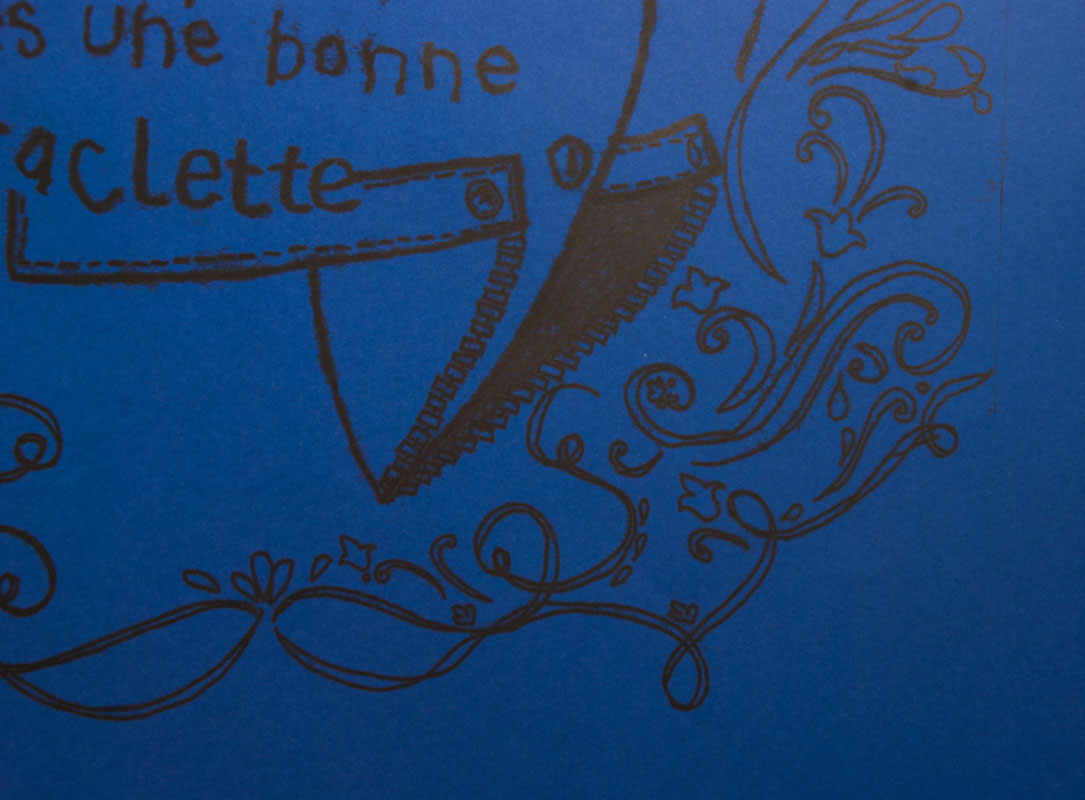 une bonne
raclette